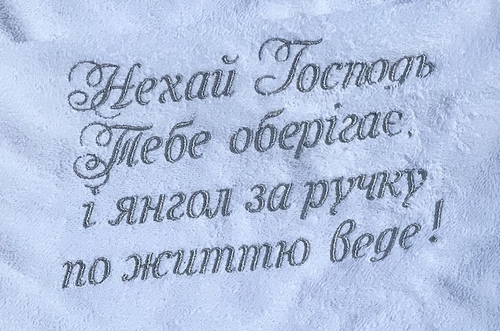 Нехай Господь
Тебе оберігає,
і янгол за ручку
по життю веде!